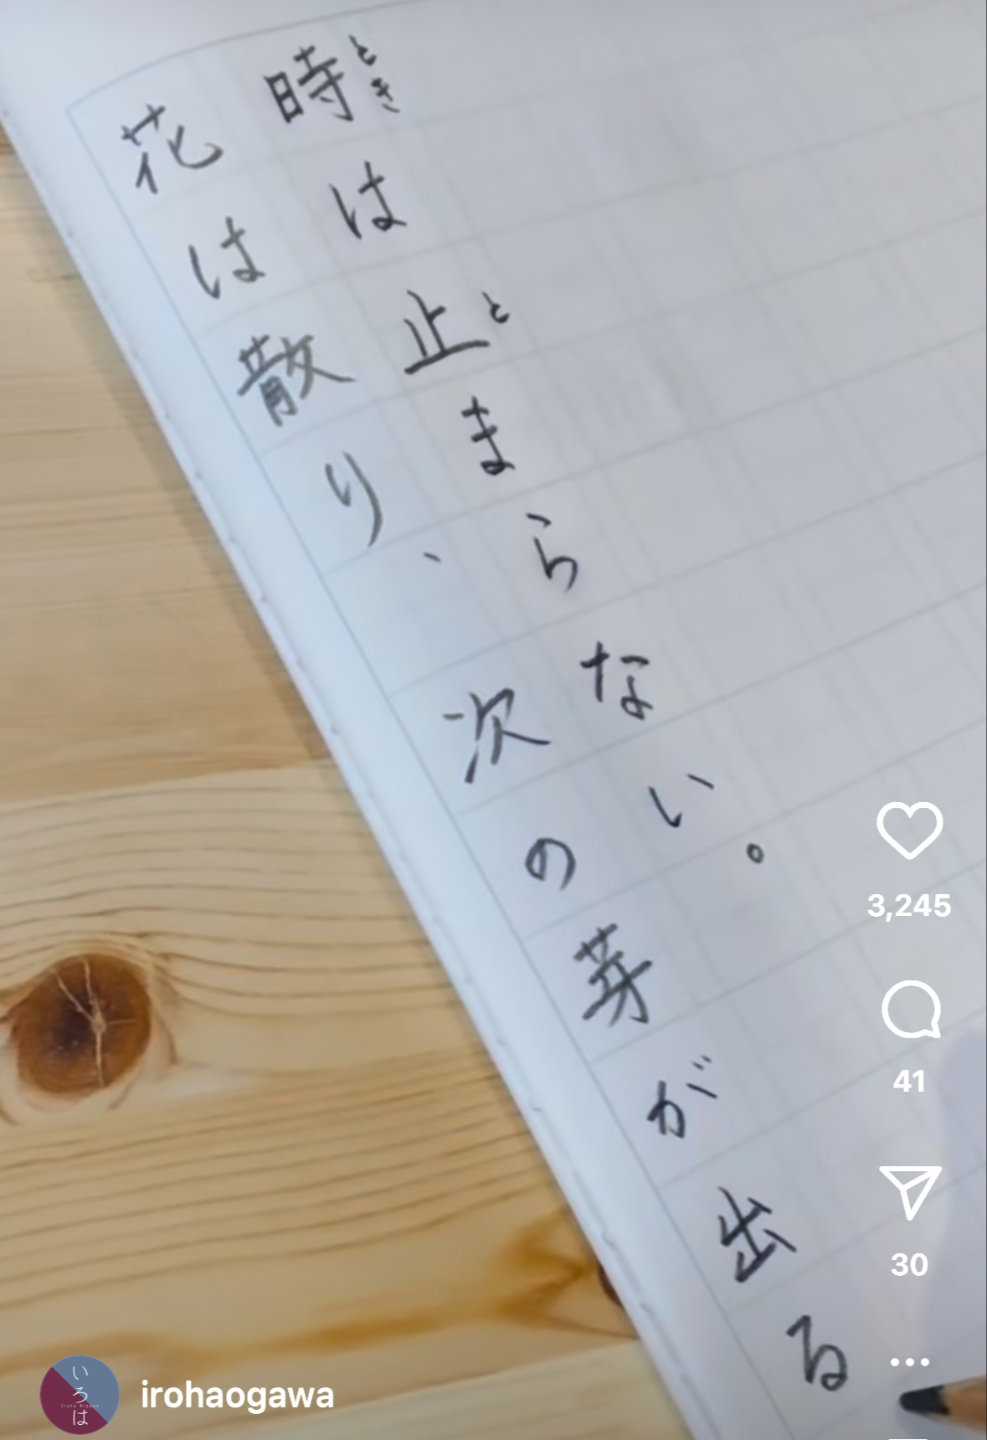 とき と
時は止まらない。
花は散り、次の芽が出る
3,245
41
30
いろは
irohaogawa